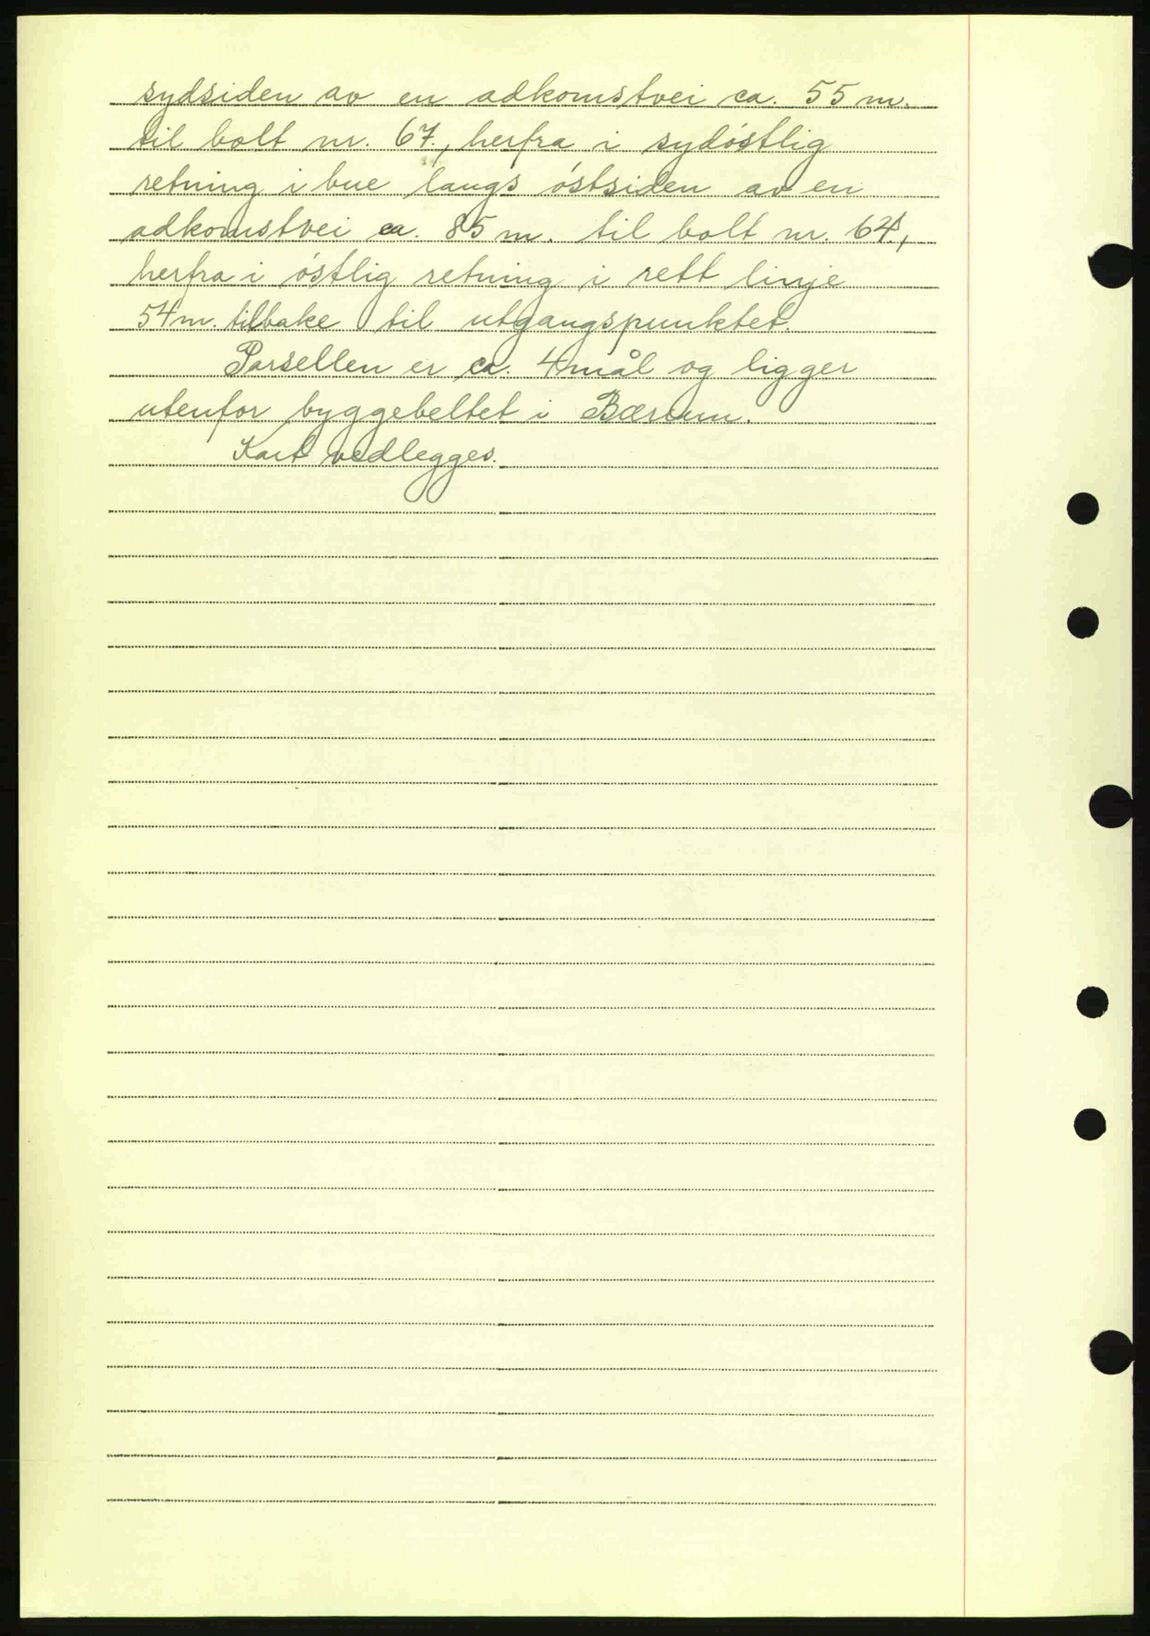 sydsiden av en adkomstvei ca. 55 m.
til bolt nr. 67., herfra i sydøstlig
retning i bue langs østsiden av en
adkomstvei ca. 85 m. til bolt nr. 64.,
herfra i østlig retning i rett linje
54 m. tilbake til utgangspunktet.
Parsellen er ca. 4 mål og ligger
utenfor byggebeltet i Bærum.
Kart vedlegges.